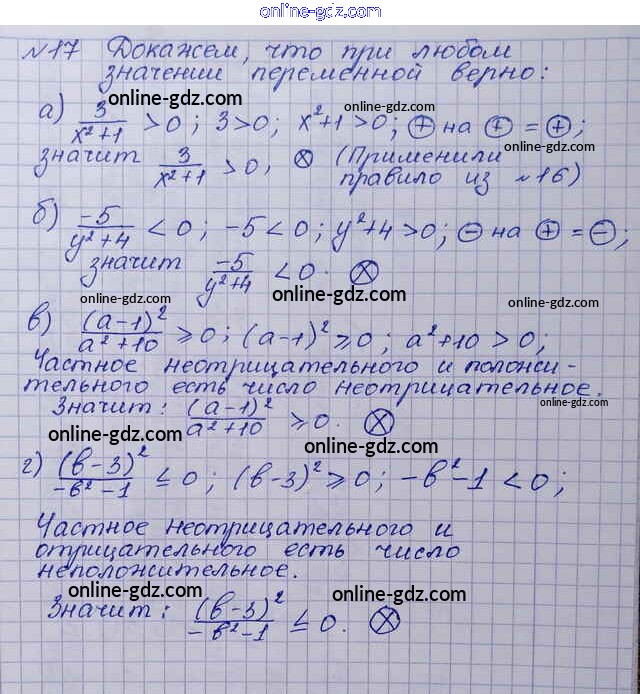 online-gdz.com
№17 Докажем, что при любом
значении переменной верно:
online-gdz.com
а) 3/(x²+1) > 0; 3>0; x²+1>0; ⊕ на ⊕ = ⊕;
online-gdz.com
значит 3/(x²+1) > 0, ⊗ (Применили
правило из №16)
online-gdz.com
б) -5/(y²+4) < 0; -5<0; y²+4>0; ⊖ на ⊕ = ⊖;
online-gdz.com
значит -5/(y²+4) < 0. ⊗
online-gdz.com
online-gdz.com online-gdz.com
в) (a-1)²/(a²+10) ≥ 0; (a-1)² ≥ 0; a²+10 > 0;
Частное неотрицательного и положи-
тельного есть число неотрицательное.
online-gdz.com
Значит: (a-1)²/(a²+10) ≥ 0. ⊗
online-gdz.com
online-gdz.com
г) (b-3)²/(-b²-1) ≤ 0; (b-3)² ≥ 0; -b²-1 < 0;
online-gdz.com
Частное неотрицательного и
отрицательного есть число
неположительное.
online-gdz.com
online-gdz.com
Значит: (b-3)²/(-b²-1) ≤ 0. ⊗
online-gdz.com